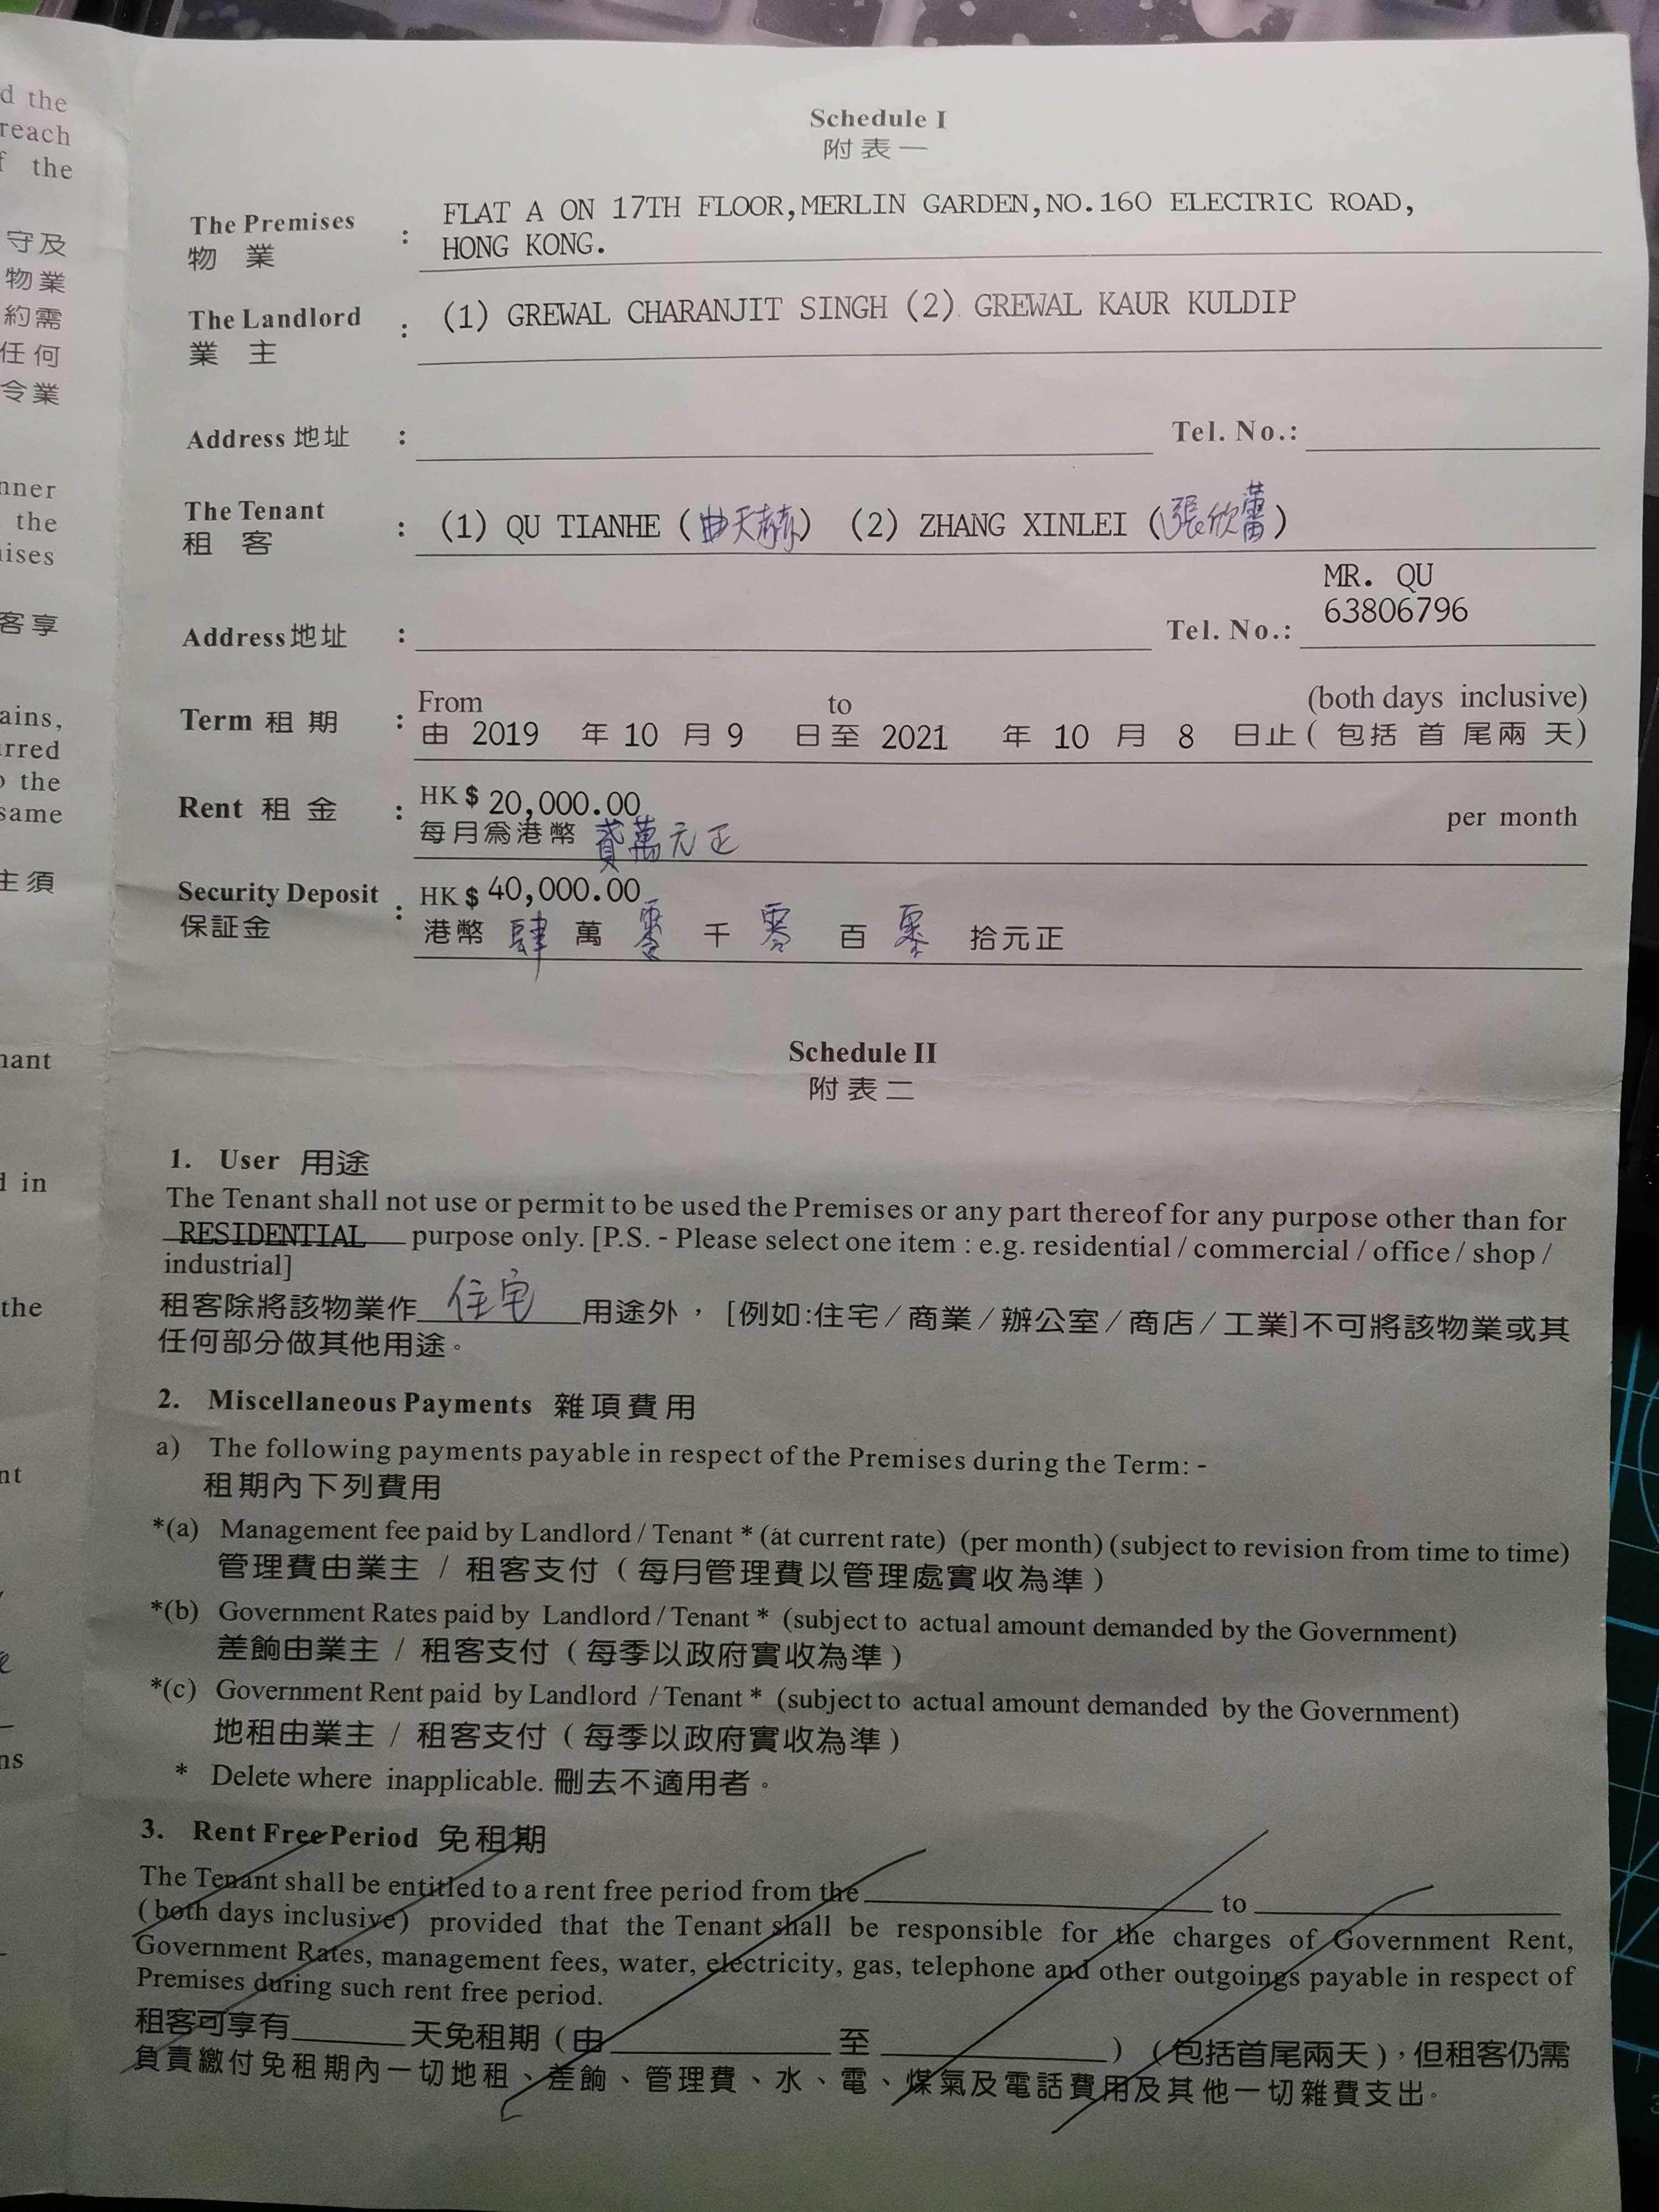 d the
reach
f the
守及
物業
約需
任何
令業
nner
the
ises
客享
ains,
rred
o the
same
主須
nant
d in
the
nt
ns
Schedule I
附表一
The Premises
物 業
: FLAT A ON 17TH FLOOR,MERLIN GARDEN,NO.160 ELECTRIC ROAD,
HONG KONG.
The Landlord
業 主
: (1) GREWAL CHARANJIT SINGH (2) GREWAL KAUR KULDIP
Address 地址 : Tel. No.:
The Tenant
租 客
: (1) QU TIANHE (曲天赫) (2) ZHANG XINLEI (張欣蕾)
MR. QU
63806796
Address地址 : Tel. No.:
From to (both days inclusive)
Term 租期 : 由 2019 年 10 月 9 日至 2021 年 10 月 8 日止 ( 包括 首 尾兩 天)
Rent 租金 : HK$ 20,000.00 per month
每月為港幣 貳萬元正
Security Deposit : HK$ 40,000.00
保証金 港幣 肆 萬 零 千 零 百 零 拾元正
Schedule II
附表二
1. User 用途
The Tenant shall not use or permit to be used the Premises or any part thereof for any purpose other than for
RESIDENTIAL purpose only. [P.S. - Please select one item : e.g. residential / commercial / office / shop /
industrial]
租客除將該物業作 住宅 用途外，[例如:住宅/商業/辦公室/商店/工業]不可將該物業或其
任何部分做其他用途。
2. Miscellaneous Payments 雜項費用
a) The following payments payable in respect of the Premises during the Term: -
租期內下列費用
*(a) Management fee paid by Landlord / Tenant * (at current rate) (per month) (subject to revision from time to time)
管理費由業主 / 租客支付 ( 每月管理費以管理處實收為準 )
*(b) Government Rates paid by Landlord / Tenant * (subject to actual amount demanded by the Government)
差餉由業主 / 租客支付 ( 每季以政府實收為準 )
*(c) Government Rent paid by Landlord / Tenant * (subject to actual amount demanded by the Government)
地租由業主 / 租客支付 ( 每季以政府實收為準 )
* Delete where inapplicable. 刪去不適用者。
3. Rent Free Period 免租期
The Tenant shall be entitled to a rent free period from the to
(both days inclusive) provided that the Tenant shall be responsible for the charges of Government Rent,
Government Rates, management fees, water, electricity, gas, telephone and other outgoings payable in respect of
Premises during such rent free period.
租客可享有 天免租期 ( 由 至 ) ( 包括首尾兩天 )，但租客仍需
負責繳付免租期內一切地租、差餉、管理費、水、電、煤氣及電話費用及其他一切雜費支出。